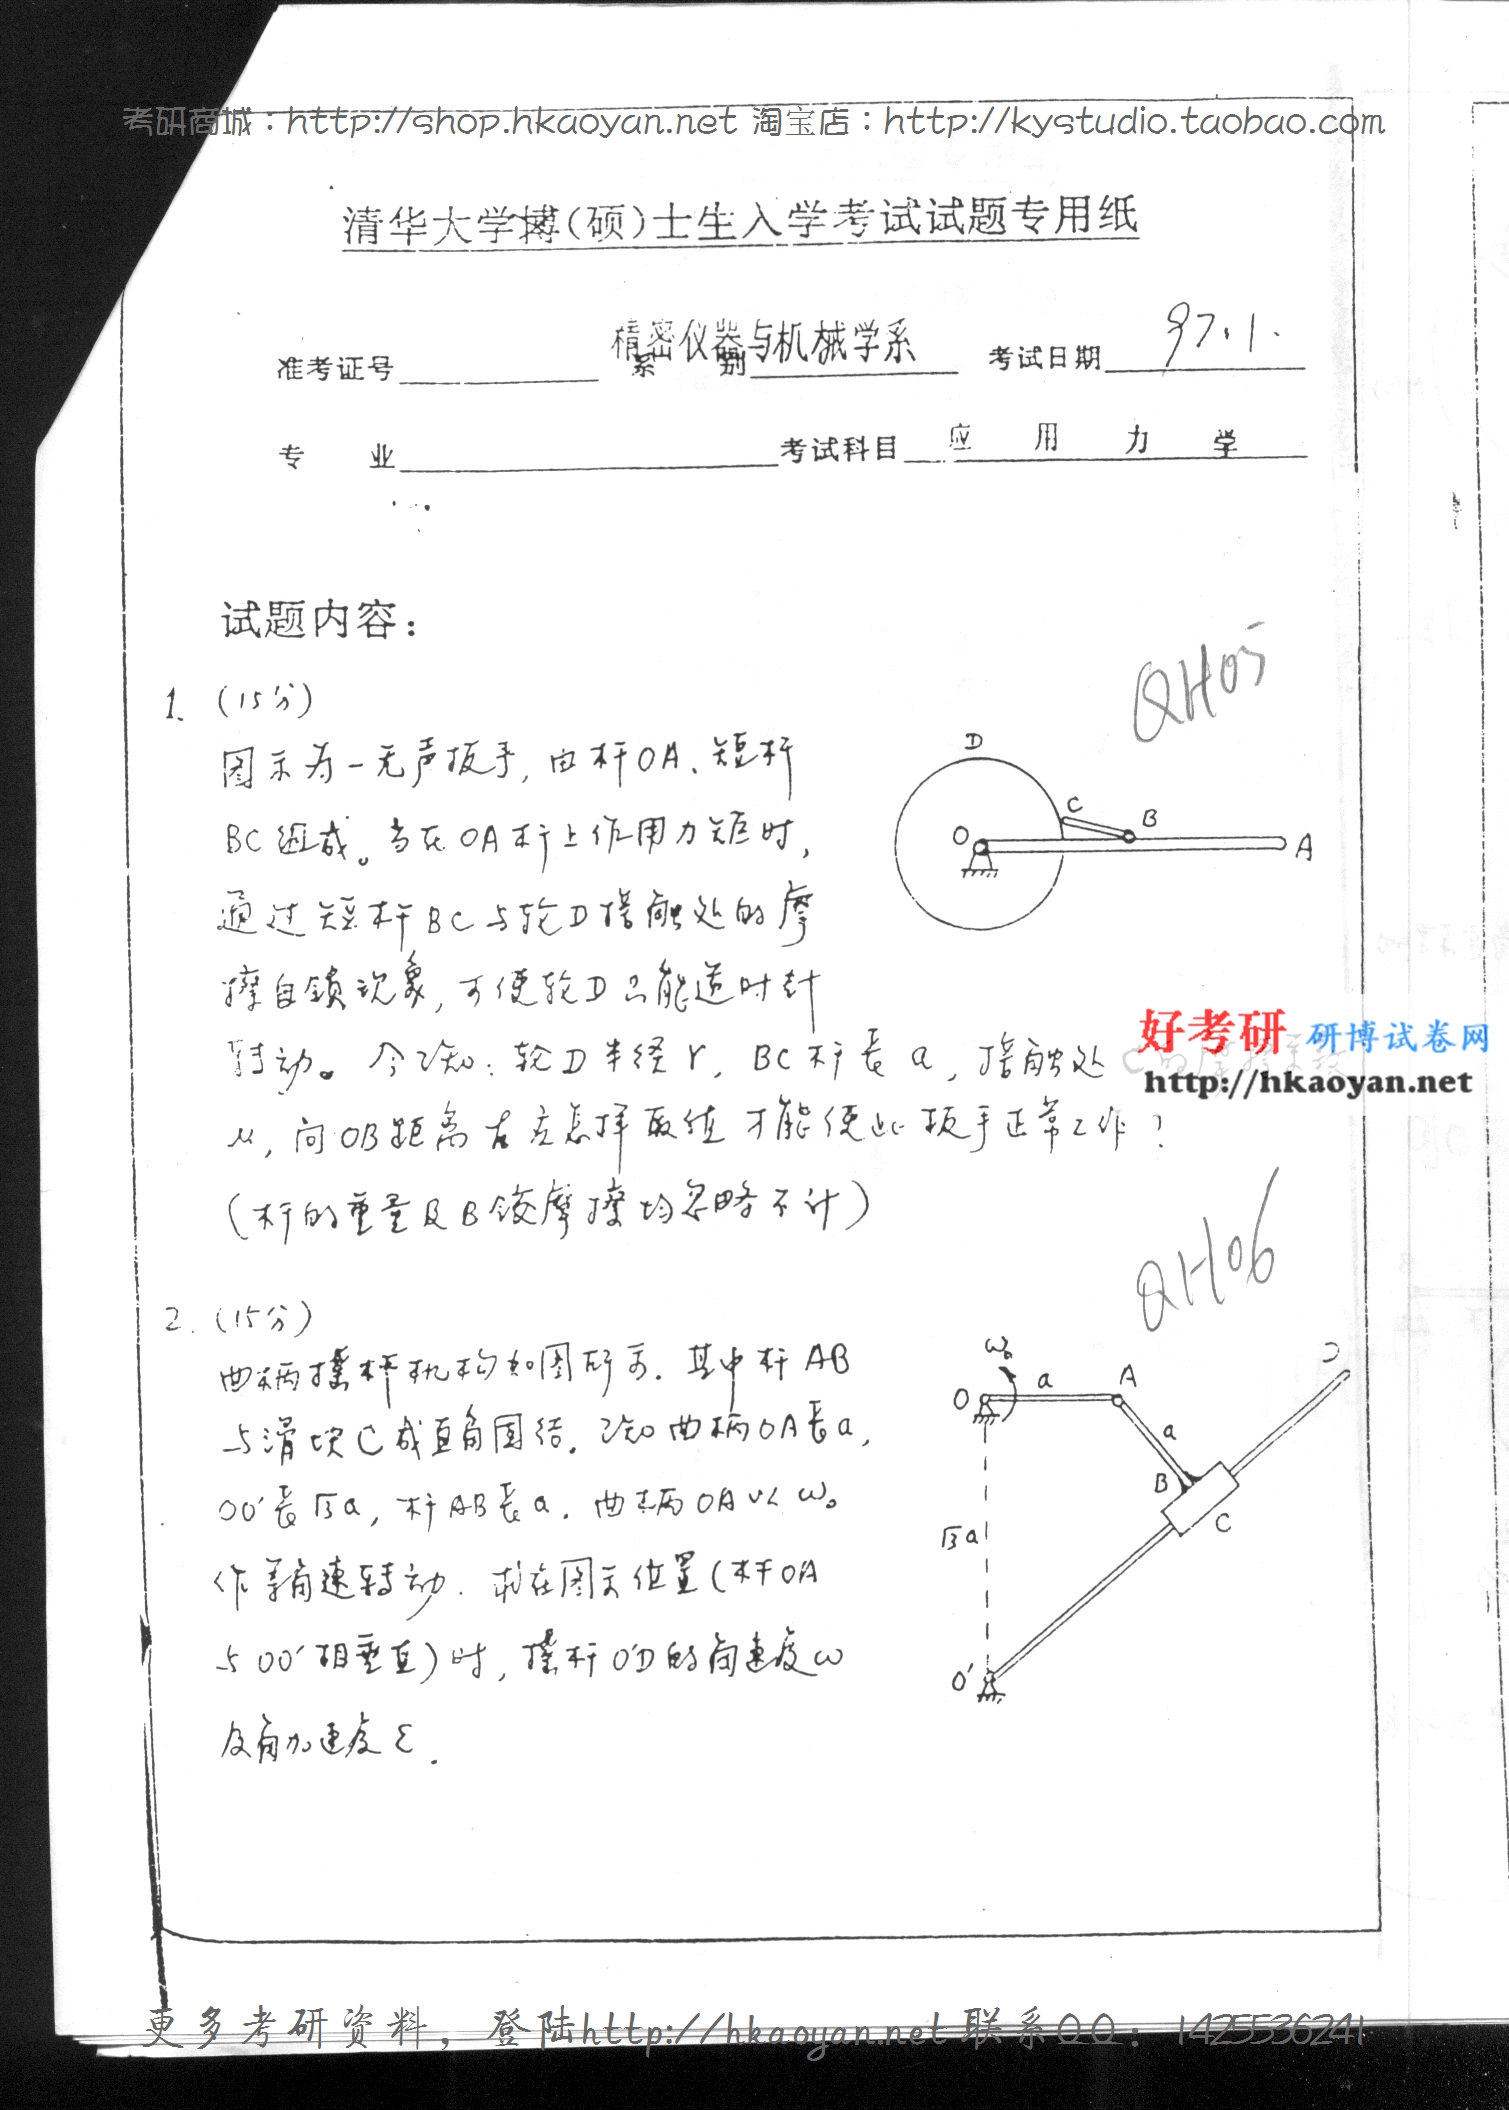 考研商城：http://shop.hkaoyan.net 淘宝店：http://kystudio.taobao.com
清华大学博(硕)士生入学考试试题专用纸
准考证号 系别 精密仪器与机械学系 考试日期 97.1.
专业 考试科目 应用力学
试题内容：
QH05
1. (15分)
图示为一无声扳手, 由杆OA、短杆
BC组成。当在OA杆上作用力矩时,
通过短杆BC与轮D接触处的摩
擦自锁现象, 可使轮D只能逆时针
转动。今已知: 轮D半径r, BC杆长a, 接触处C的摩擦系数
μ, 问OB距离应怎样取值才能使此扳手正常工作?
(杆的重量及B铰摩擦均忽略不计)
D
C
B
O
A
好考研 研博试卷网
http://hkaoyan.net
QH06
2. (15分)
曲柄摇杆机构如图所示. 其中杆AB
与滑块C成直角固结. 已知曲柄OA长a,
OO'长√3a, 杆AB长a. 曲柄OA以ω₀
作等角速转动. 求在图示位置(杆OA
与OO'相垂直)时, 摇杆O'D的角速度ω
及角加速度ε.
ω₀
O
a
A
D
a
B
C
√3a
O'
更多考研资料，登陆http://hkaoyan.net联系QQ：1425536241